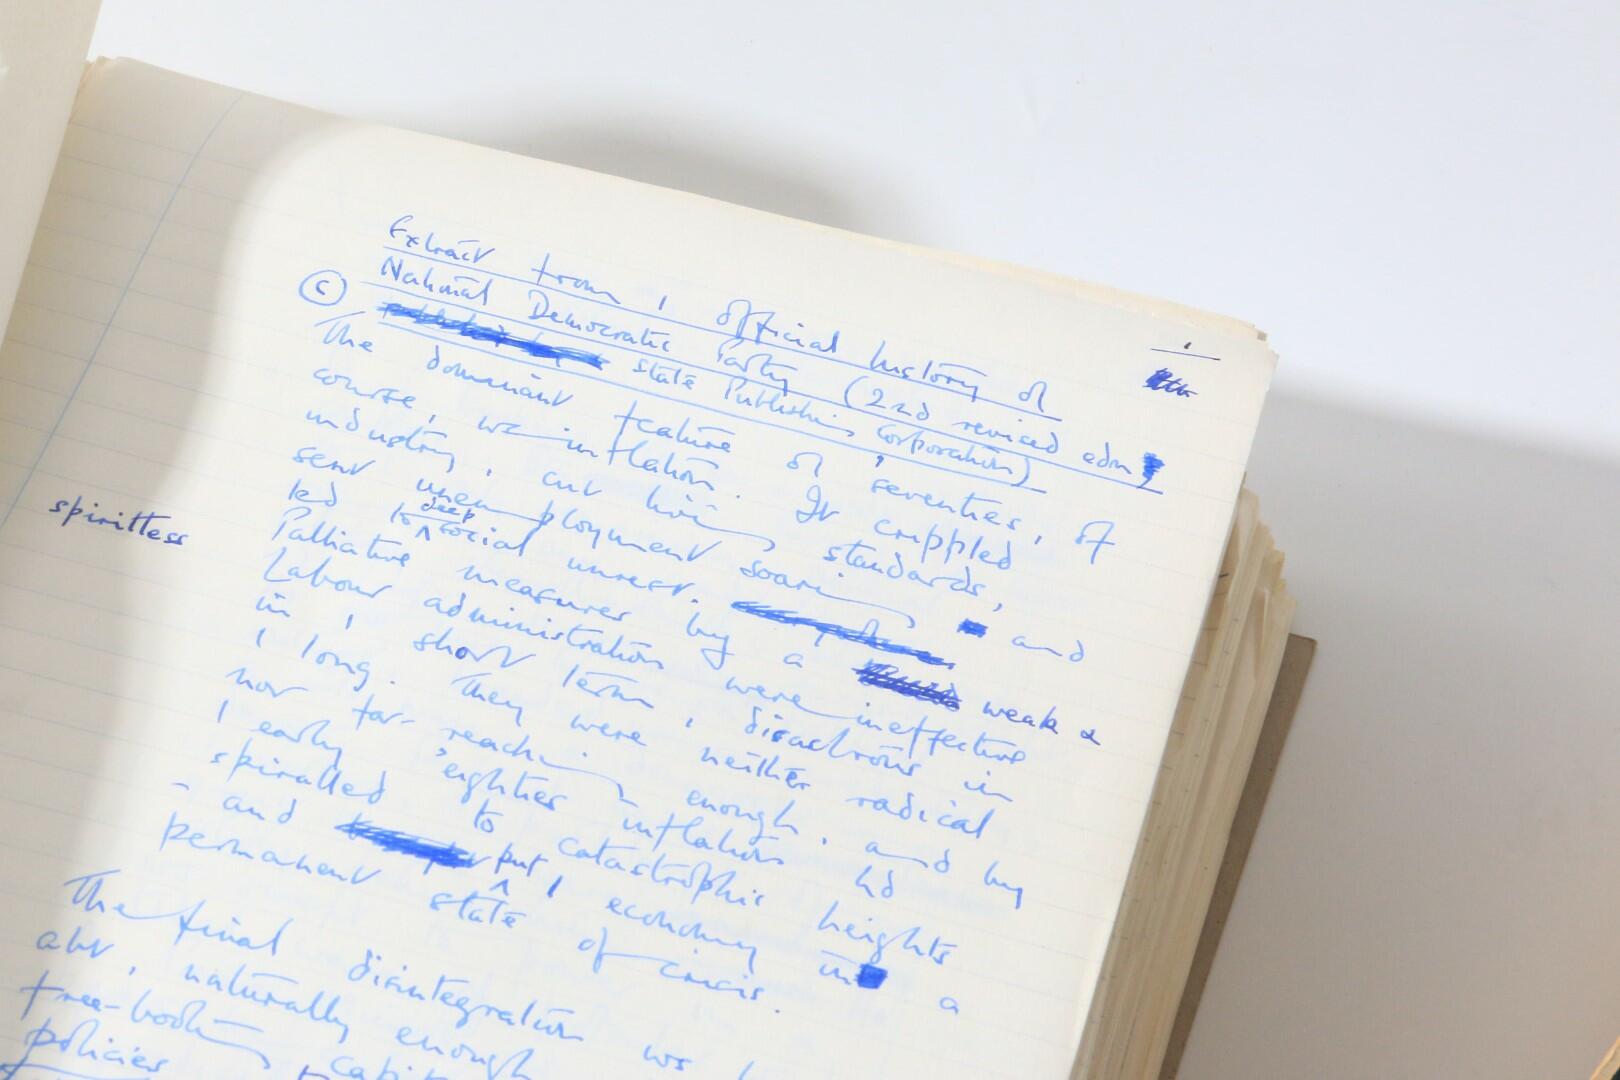 1
Extract from / official history of
National Democratic Party (2nd revised edn,
(c) State Publishing Corporation)
The dominant feature of / 'seventies, of
course, ws inflation. It crippled
industry, cut living standards,
sent unemployment soaring and
led to deep social unrest.
Palliative measures by a weak &
spiritless
Labour administration were ineffective
in / short term, disastrous in
/ long. They were neither radical
nor far-reaching enough. and by
/ early 'eighties inflation hd
spiralled to catastrophic heights
- and put / economy in a
permanent state of crisis.
The final disintegration ws
abt, naturally enough
free-booting
policies